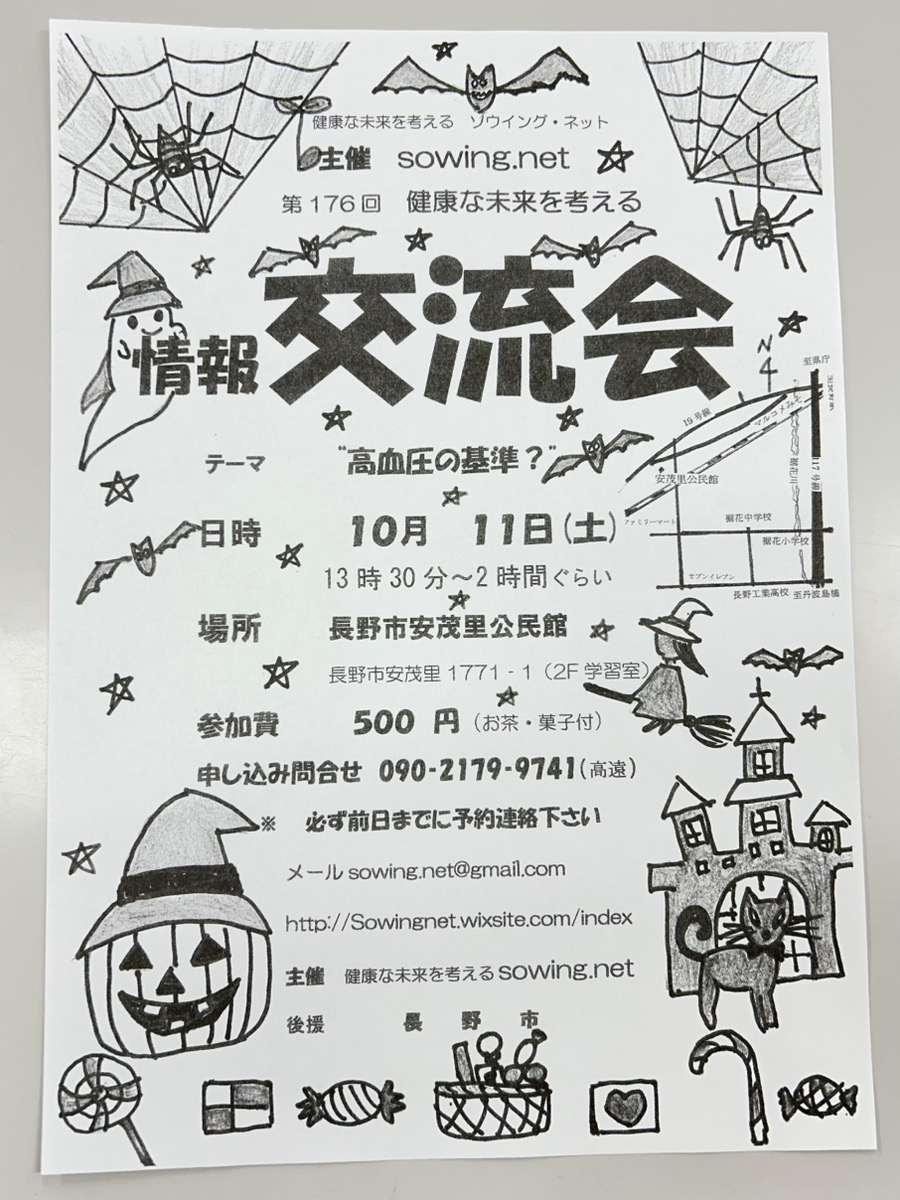 健康な未来を考える　ソウイング・ネット
主催　sowing.net
第176回　健康な未来を考える
情報 交流会
テーマ　“高血圧の基準？”
日時　10月　11日(土)
13時30分～2時間ぐらい
場所　長野市安茂里公民館
長野市安茂里1771-1（2F学習室）
参加費　500円（お茶・菓子付）
申し込み問合せ　090-2179-9741(高遠)
※　必ず前日までに予約連絡下さい
メール sowing.net@gmail.com
http://Sowingnet.wixsite.com/index
主催　健康な未来を考える sowing.net
後援　長　野　市
N
至県庁
19号線
マルコメみそ
安茂里公民館
裾花川
117号線
ファミリーマート
裾花中学校
裾花小学校
セブンイレブン
長野工業高校
至丹波島橋